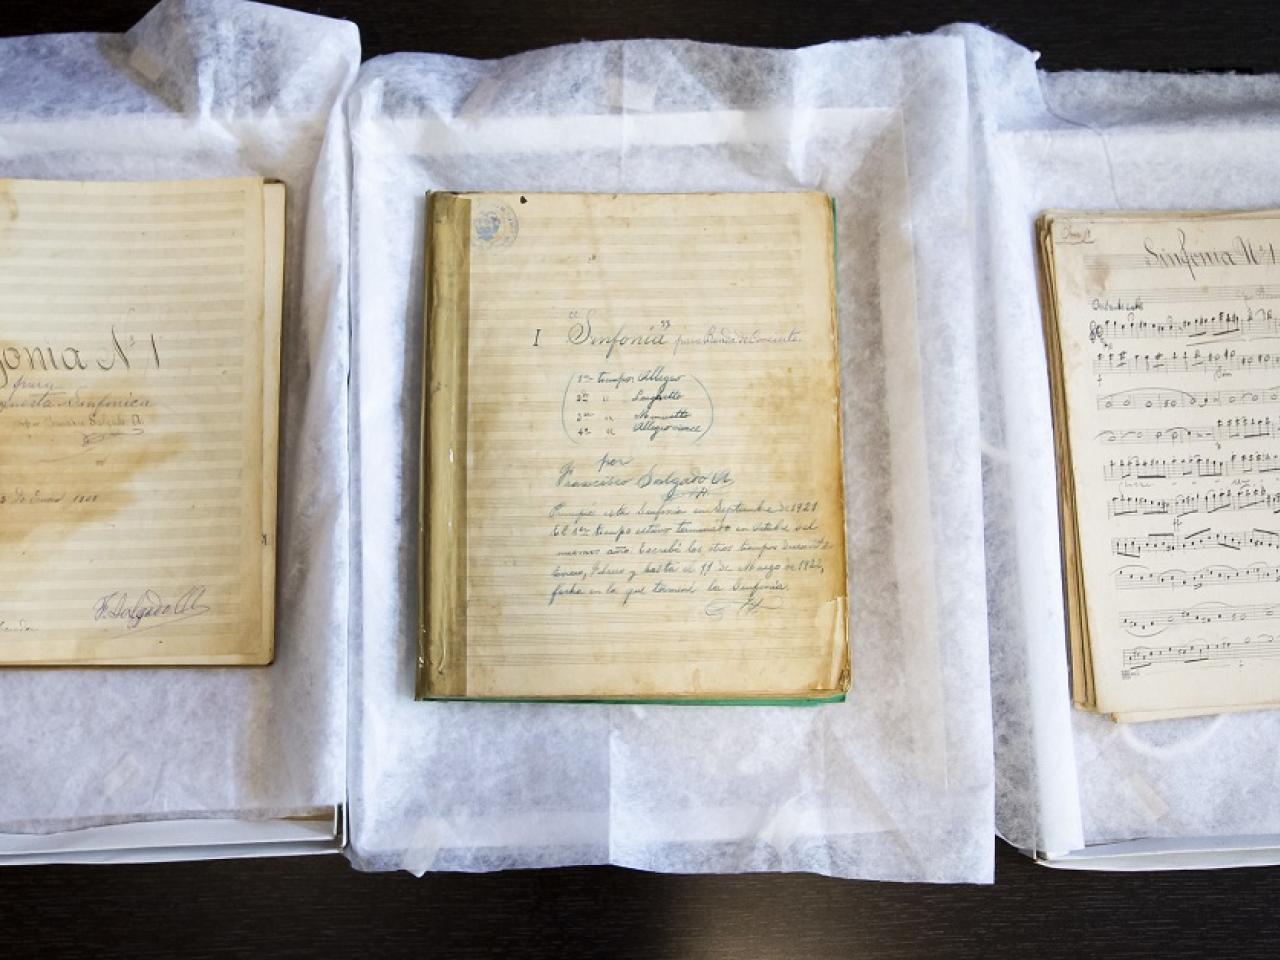 onia Nº 1
para
uesta Sinfónica
Salgado A.
de Enero 19
F. Salgado A
I "Sinfonía" para Banda de Concierto.
1er tiempo Allegro
2do " Larghetto
3er " Minuetto
4to " Allegro vivace
por
Francisco Salgado A
Principié esta Sinfonía en Septiembre de 1921
El 1er tiempo estuvo terminado en Octubre del
mismo año. Escribí los otros tiempos durante
Enero, Febrero y hasta el 11 de Marzo de 1922,
fecha en la que terminé la Sinfonía.
Sinfonia Nº 1